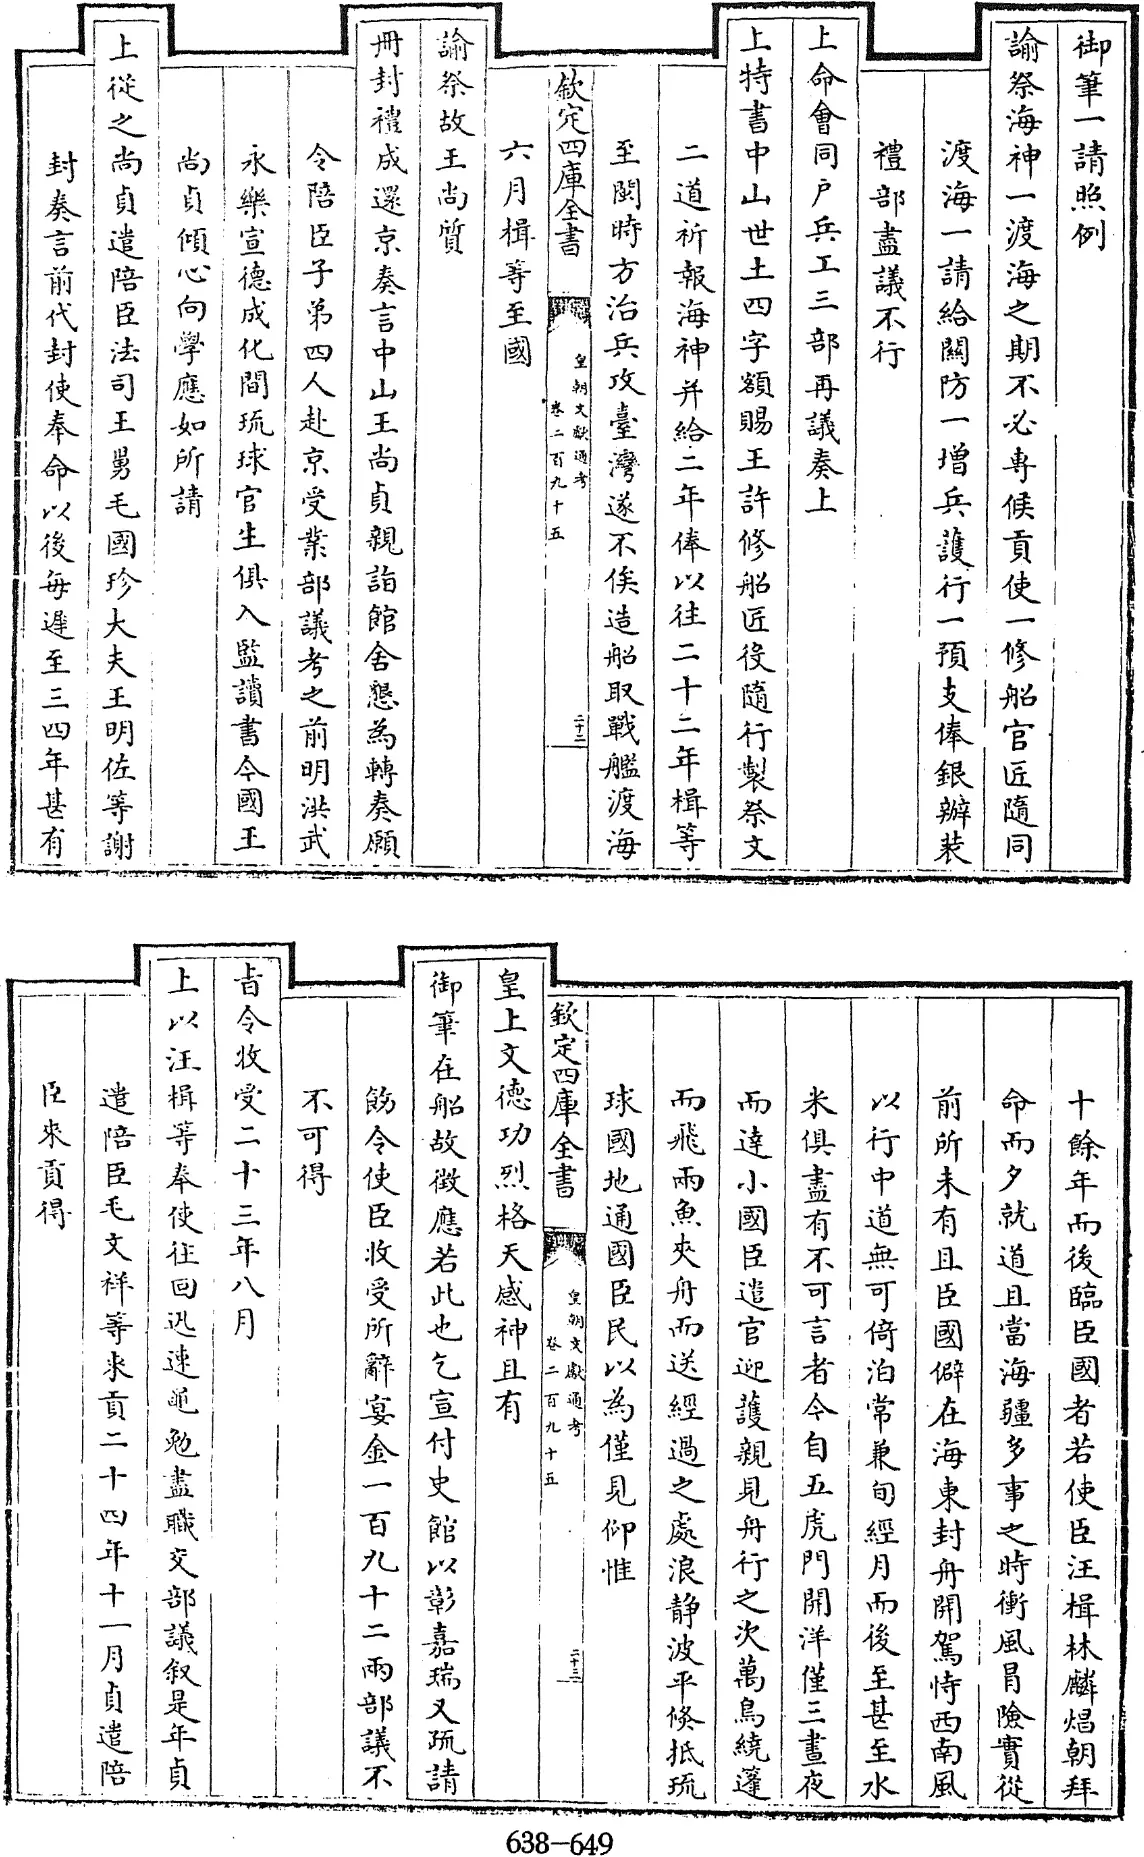 御筆一請照例
諭祭海神一渡海之期不必專候貢使一修船官匠隨同
渡海一請給關防一增兵護行一預支俸銀辦裝
禮部盡議不行
上命會同戶兵工三部再議奏上
上特書中山世土四字額賜王許修船匠役隨行製祭文
二道祈報海神并給二年俸以往二十二年楫等
至閩時方治兵攻臺灣遂不俟造船取戰艦渡海
欽定四庫全書
皇朝文獻通考
卷二百九十五
二十二
六月楫等至國
諭祭故王尚質
冊封禮成還京奏言中山王尚貞親詣館舍懇為轉奏願
令陪臣子弟四人赴京受業部議考之前明洪武
永樂宣德成化間琉球官生俱入監讀書今國王
尚貞傾心向學應如所請
上從之尚貞遣陪臣法司王舅毛國珍大夫王明佐等謝
封奏言前代封使奉命以後每遲至三四年甚有
十餘年而後臨臣國者若使臣汪楫林麟焻朝拜
命而夕就道且當海疆多事之時衝風冒險實從
前所未有且臣國僻在海東封舟開駕恃西南風
以行中道無可倚泊常兼旬經月而後至甚至水
米俱盡有不可言者今自五虎門開洋僅三晝夜
而達小國臣遣官迎護親見舟行之次萬鳥繞蓬
而飛兩魚夾舟而送經過之處浪靜波平倐抵琉
球國地通國臣民以為僅見仰惟
欽定四庫全書
皇朝文獻通考
卷二百九十五
二十三
皇上文德功烈格天感神且有
御筆在船故徵應若此也乞宣付史館以彰嘉瑞又疏請
飭令使臣收受所辭宴金一百九十二兩部議不
不可得
旨令收受二十三年八月
上以汪楫等奉使往回迅速黽勉盡職交部議敘是年貞
遣陪臣毛文祥等來貢二十四年十一月貞遣陪
臣來貢得
638-649